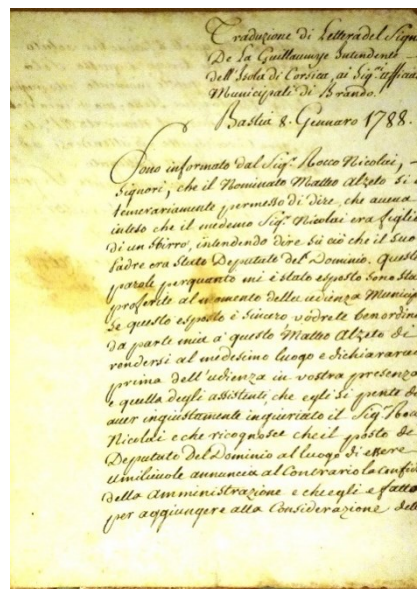 Traduzione di Lettera del Sign
De La Guillaumye Intendente
dell'Isola di Corsica, ai Sig.ri offician
Municipali di Brando.
Bastia 8. Gennaro 1788.
Sono informato dal Sig.r Rocco Nicolai,
Signori, che il Nominato Matteo Alzeto Si è
temerariamente permesso di dire, che aueua
inteso che il medemo Sig.r Nicolai era figlio
di un Sbirro, intendendo dire Sù ciò che il Suo
Padre era Stato Deputato del Dominio. Queste
parole perquanto mi è stato esposto Sono State
proferite al momento della udienza Municip
Se questo esposto è Sincero vodrete ben ordina
da parte mia a questo Matteo Alzeto di
rendersi al medesimo luogo e dichiarare
prima dell'udienza in vostra presenza
e quella degli assistenti, che egli Si pente di
auer ingiustamente ingiuriato il Sig.r Rocc
Nicolai e che ricognosce che il posto de
Deputato del Dominio al luogo di essere
umiliuole annuncia al Contrario la Confid
della Amministrazione e che egli è fatto
per aggiungere alla Considerazione dell